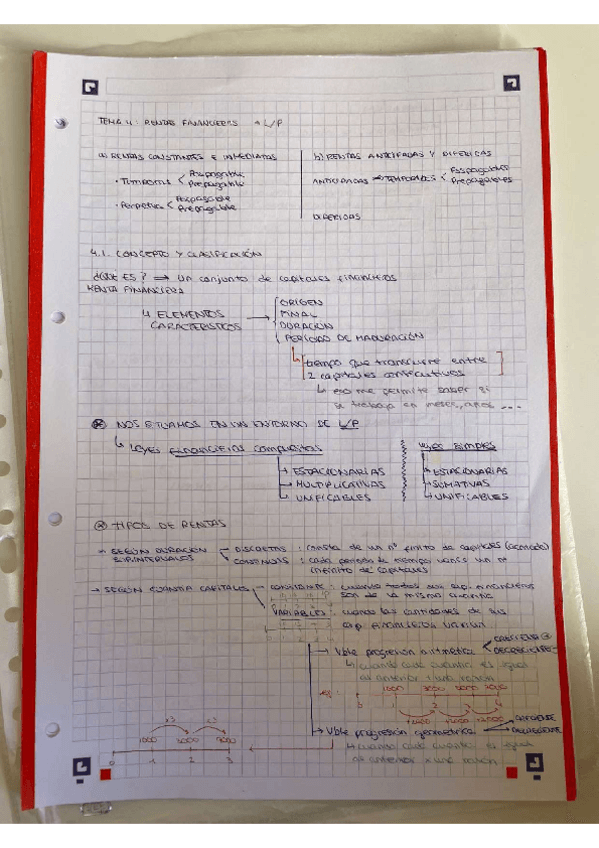 TEMA 4: RENTAS FINANCIERAS → L/P
a) RENTAS CONSTANTES E INMEDIATAS
· Temporales < Pospagable
Prepagable
· Perpetua < Pospagable
Prepagable
b) RENTAS ANTICIPADAS Y DIFERIDAS
ANTICIPADAS → TEMPORALES < Pospagables
Prepagables
DIFERIDAS
4.1. CONCEPTO Y CLASIFICACIÓN
¿QUÉ ES? ⟹ Un conjunto de capitales financieros
RENTA FINANCIERA
4 ELEMENTOS
CARACTERISTICOS
ORIGEN
FINAL
DURACION
PERÍODO DE MADURACIÓN
tiempo que transcurre entre
2 capitales consecutivos
eso me permite saber si
se trabaja en meses, años ...
NOS SITUAMOS EN UN ENTORNO DE L/P
LEYES FINANCIERAS COMPUESTAS
ESTACIONARIAS
MULTIPLICATIVAS
UNIFICABLES
LEYES SIMPLES
ESTACIONARIAS
SUMATIVAS
UNIFICABLES
TIPOS DE RENTAS
→ SEGÚN DURACIÓN
SUBINTERVALOS
DISCRETAS: consta de un nº finito de capitales
CONTINUAS: cada periodo de tiempo
infinito de capitales
→ SEGÚN CUANTIA CAPITALES
CONSTANTE: cuando todos sus cap. financieros
son de la misma cuantía
VARIABLES: cuando las cantidades de sus
cap. financieros varían
Vble progresion aritmetica
CRECIENTE
DECRECIENTE
cuando cada cuantía es igual
al anterior + una razón
1000 3000 5000 7000
0 1 2 3 4
+2000 +2000 +2000
Vble progresión geométrica
CRECIENTE
DECRECIENTE
cuando cada cuantía es igual
al anterior x una razón
x3 x3
1000 3000 9000
0 1 2 3